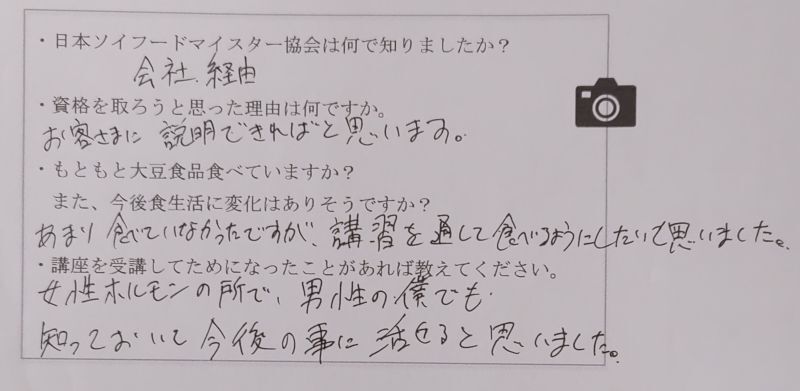 ・日本ソイフードマイスター協会は何で知りましたか？
会社.経由
・資格を取ろうと思った理由は何ですか。
お客さまに説明できればと思います。
・もともと大豆食品食べていますか？
また、今後食生活に変化はありそうですか？
あまり食べていなかったですが、講習を通して食べるようにしたいと思いました。
・講座を受講してためになったことがあれば教えてください。
女性ホルモンの所で、男性の僕でも
知っておいて今後の事に活せると思いました。